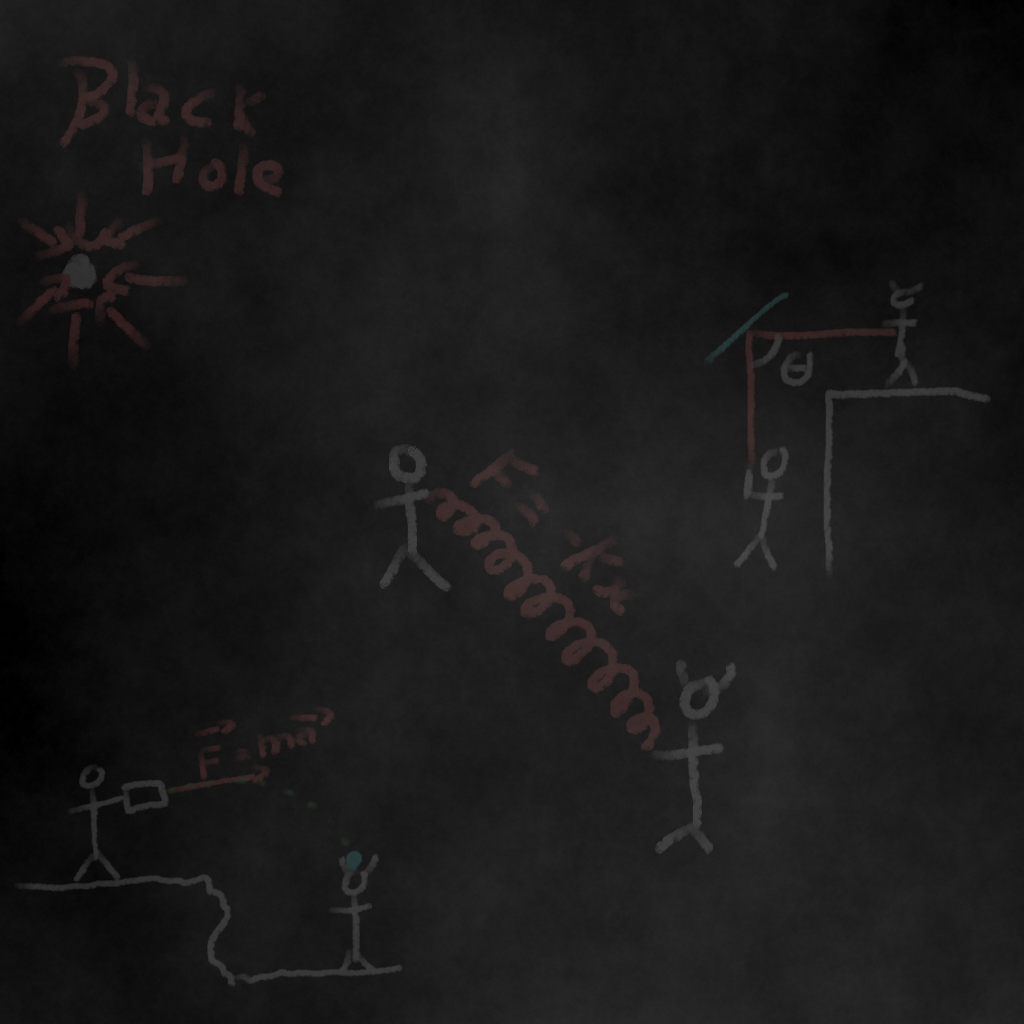 Black
Hole
θ
F = -Kx
F = ma